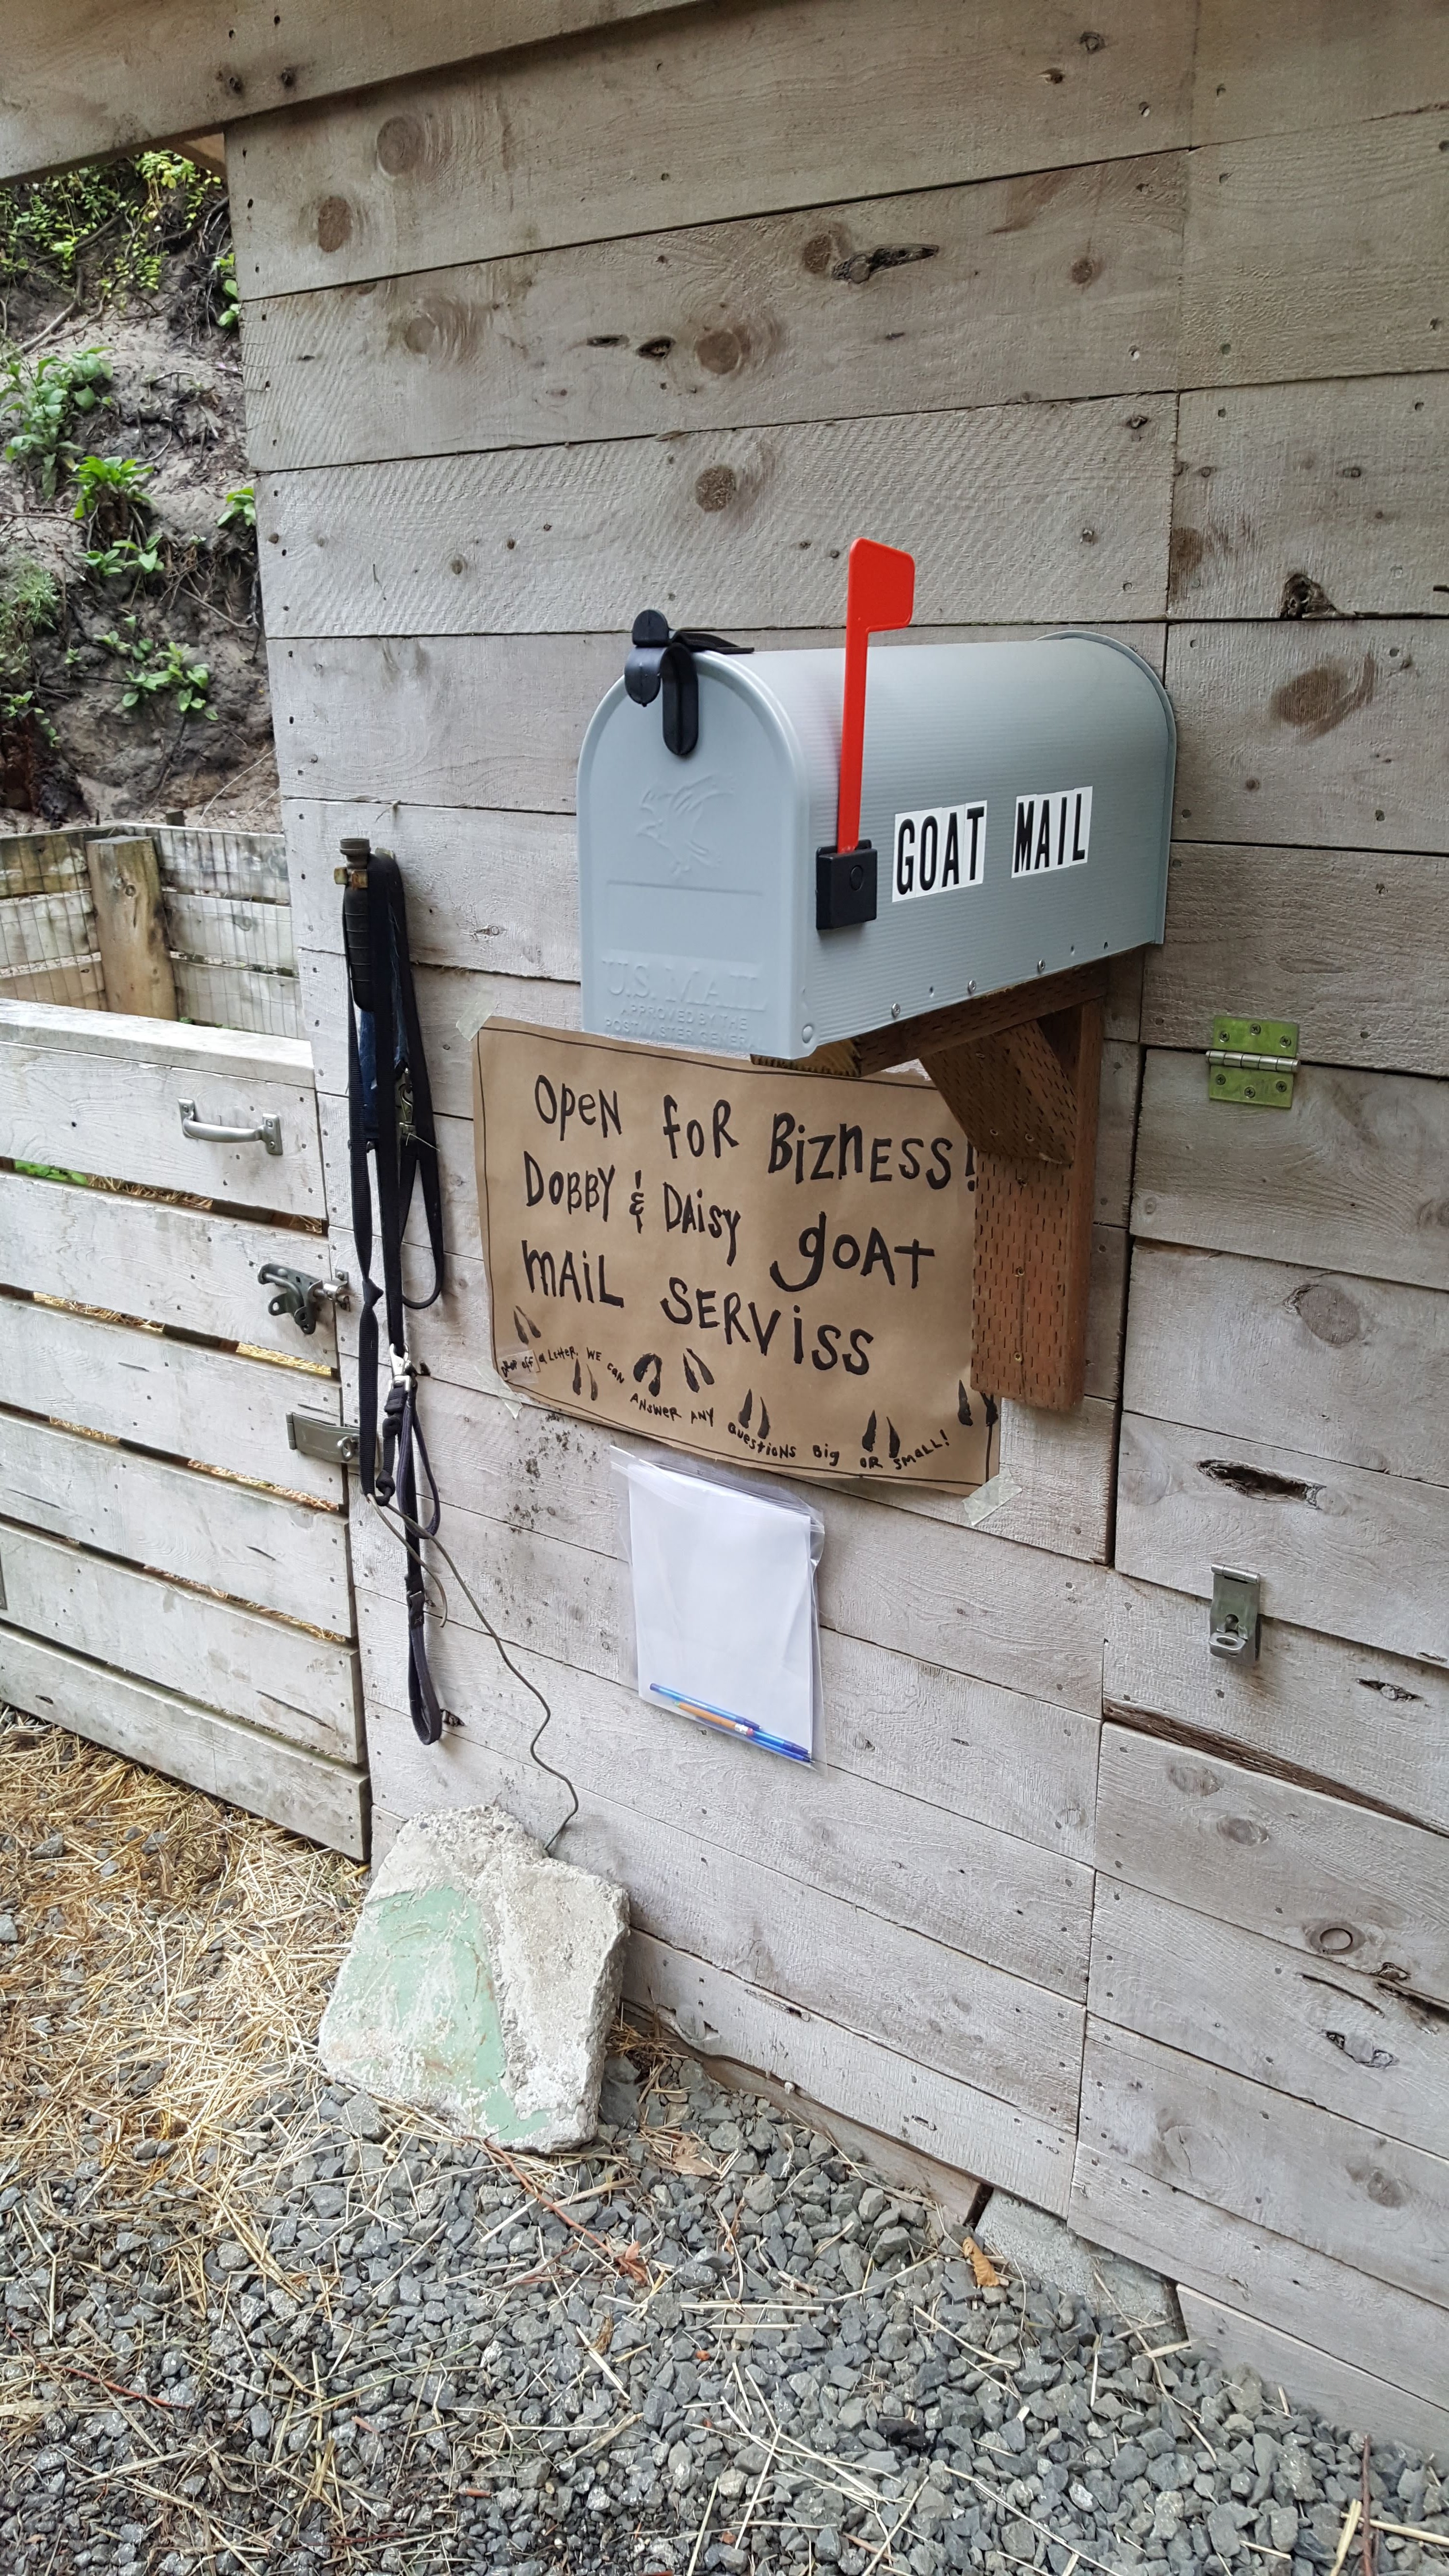 GOAT MAIL
U.S. MAIL
APPROVED BY THE
POSTMASTER GENERAL
OPEN FOR BIZNESS!
DOBBY & DAISY GOAT
MAIL SERVISS
DROP OFF A LETTER. WE CAN ANSWER ANY QUESTIONS BIG OR SMALL!